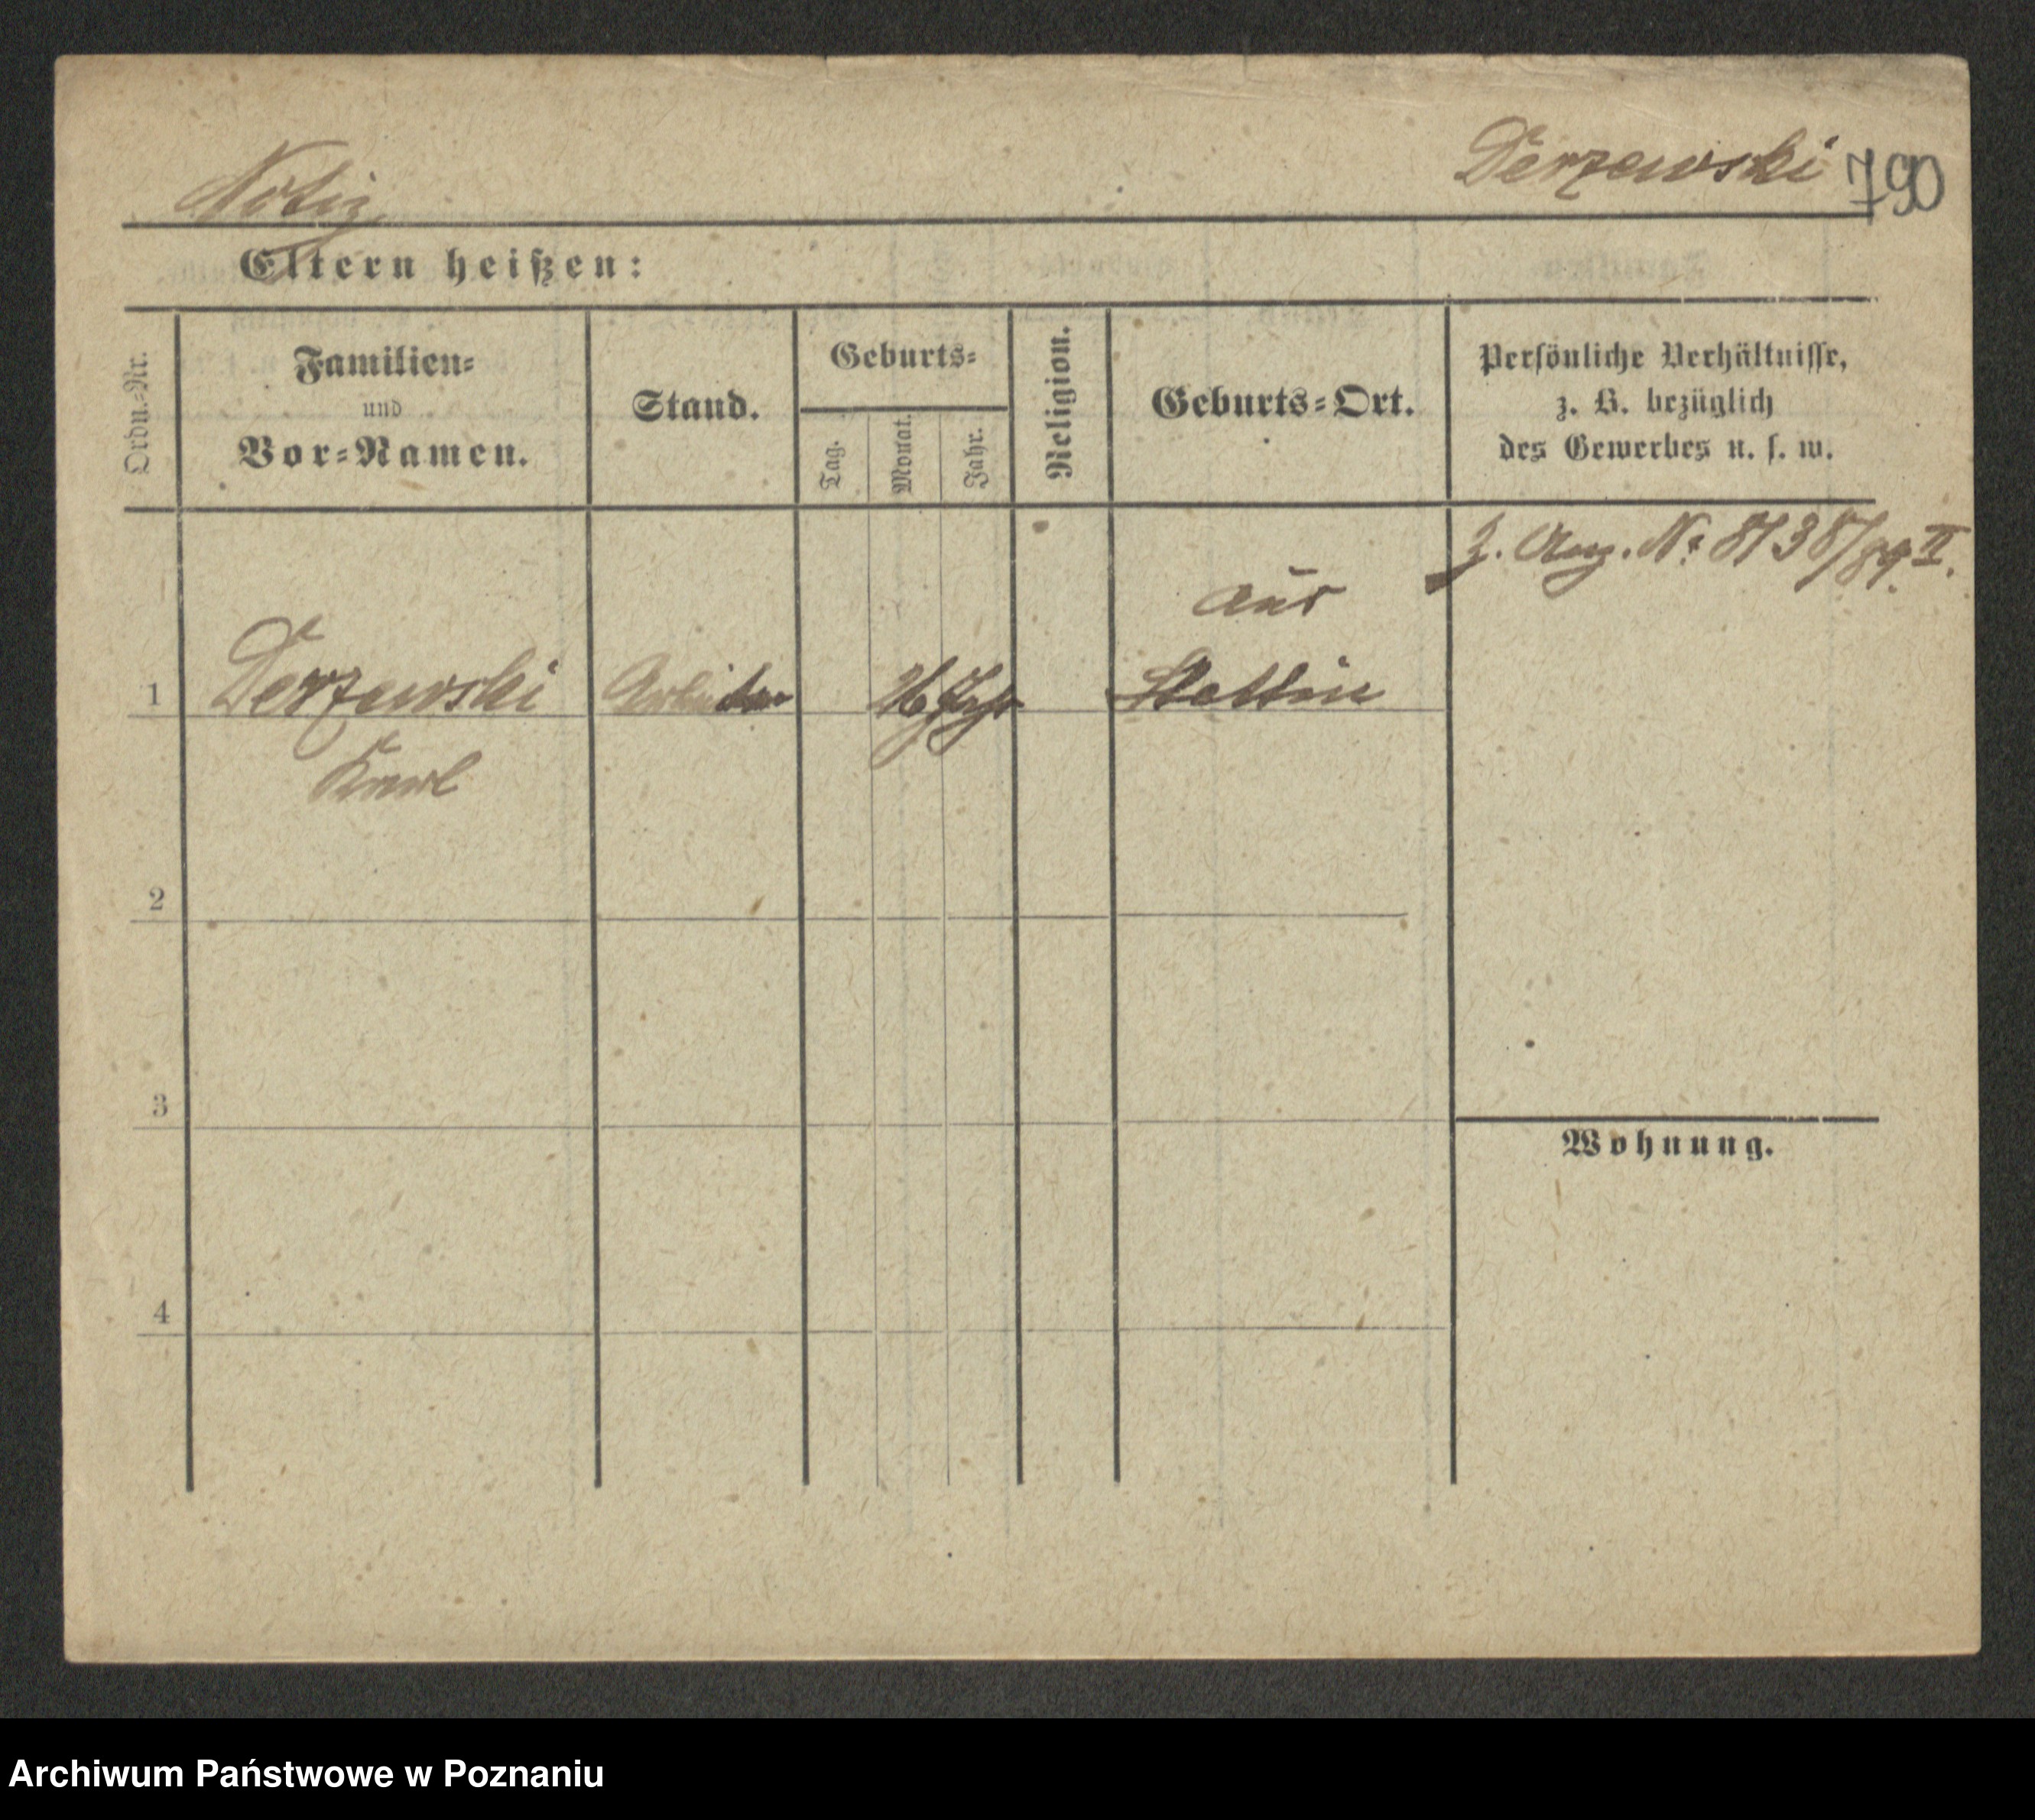 Notiz
Derzewski
790
Eltern heißen:
Ordn.-Nr.
Familien-
und
Vor-Namen.
Stand.
Geburts-
Tag.
Monat.
Jahr.
Religion.
Geburts-Ort.
Persönliche Verhältnisse,
z. B. bezüglich
des Gewerbes u. s. w.
z. Ang. No 8138/89. II.
1
Derzewski
Karl
Arbeiter
26 Jahr
aus
Stettin
2
3
4
Wohnung.
Archiwum Państwowe w Poznaniu